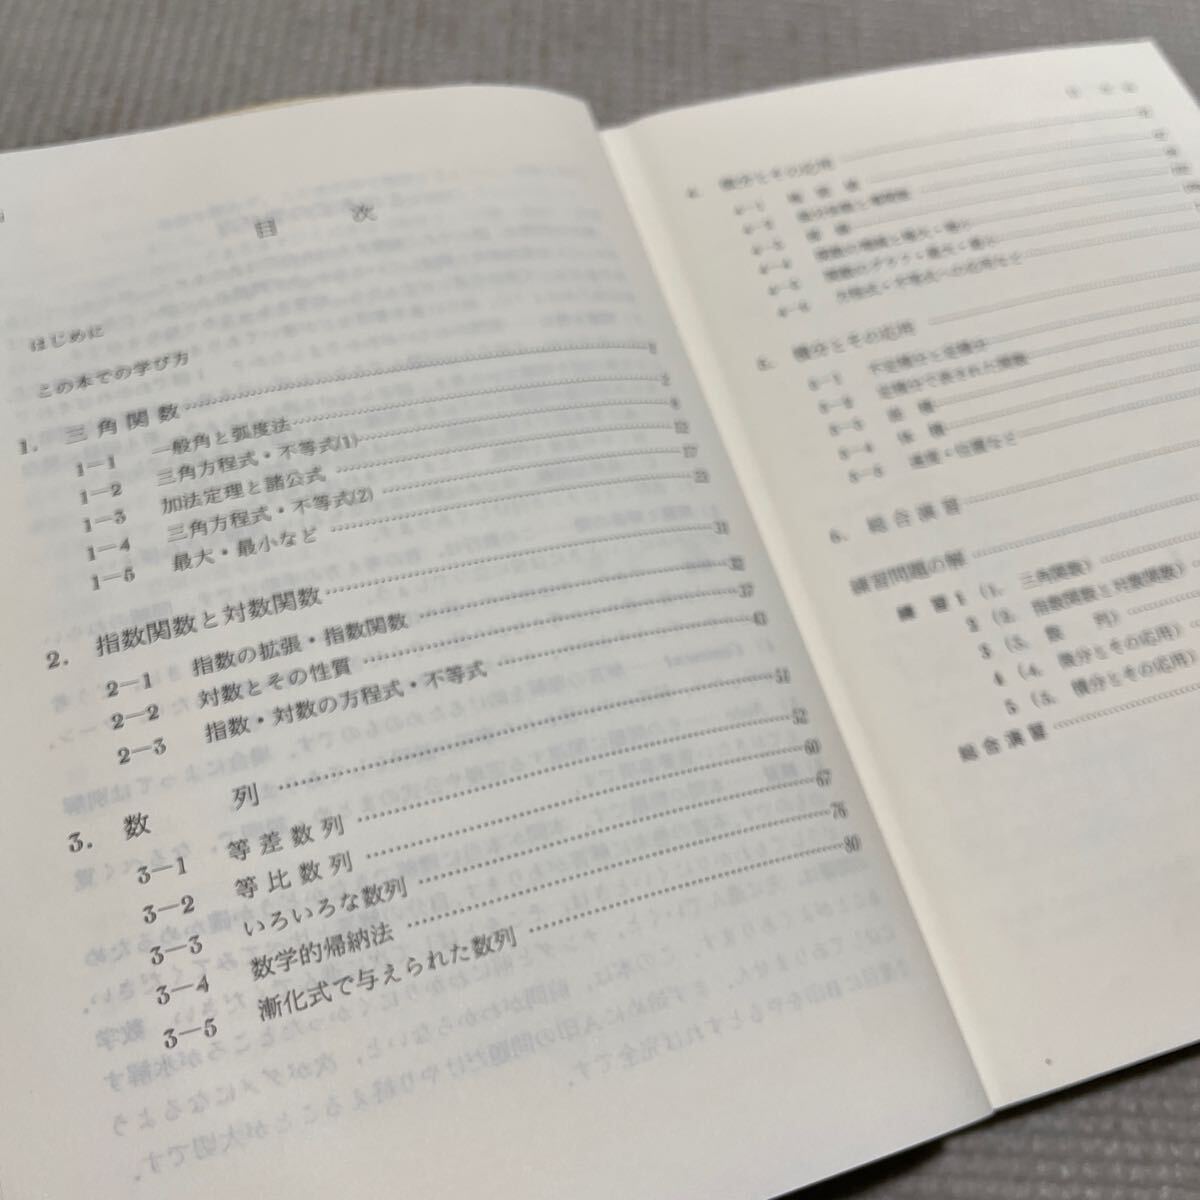 目　次
はじめに
この本での学び方
1. 三角関数 1
1—1 一般角と弧度法 2
1—2 三角方程式・不等式(1) 8
1—3 加法定理と諸公式 12
1—4 三角方程式・不等式(2) 17
1—5 最大・最小など 23
2. 指数関数と対数関数 31
2—1 指数の拡張・指数関数 32
2—2 対数とその性質 37
2—3 指数・対数の方程式・不等式 43
3. 数列 51
3—1 等差数列 52
3—2 等比数列 60
3—3 いろいろな数列 67
3—4 数学的帰納法 76
3—5 漸化式で与えられた数列 80
4. 微分とその応用
4—1
4—2
4—3
4—4 関数の増減と極大・極小
4—5 関数のグラフ・最大・最小
4—6 方程式・不等式への応用など
5. 積分とその応用
5—1 不定積分と定積分
5—2 定積分で表された関数
5—3 面積
5—4 体積
5—5 速度・位置など
6. 総合演習
練習問題の解
練習1 (1. 三角関数)
2 (2. 指数関数と対数関数)
3 (3. 数列)
4 (4. 微分とその応用)
5 (5. 積分とその応用)
総合演習